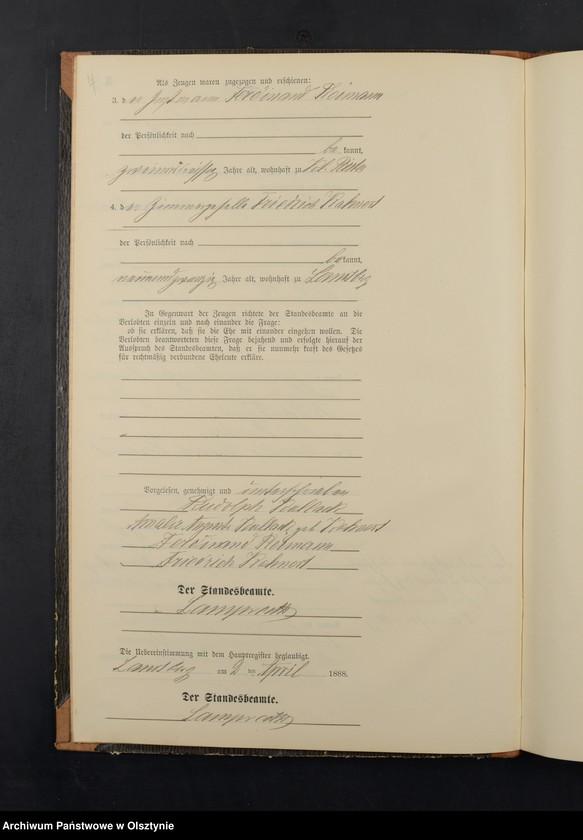 Als Zeugen waren zugezogen und erschienen:
3. der Ferdinand Reimann
der Persönlichkeit nach
be kannt,
zweiunddreissig Jahre alt, wohnhaft zu
4. der Zimmergeselle Friedrich
der Persönlichkeit nach
be kannt,
neunundzwanzig Jahre alt, wohnhaft zu Landsberg
In Gegenwart der Zeugen richtete der Standesbeamte an die
Verlobten einzeln und nach einander die Frage:
ob sie erklären, daß sie die Ehe mit einander eingehen wollen. Die
Verlobten beantworteten diese Frage bejahend und erfolgte hierauf der
Ausspruch des Standesbeamten, daß er sie nunmehr kraft des Gesetzes
für rechtmäßig verbundene Eheleute erkläre.
Vorgelesen, genehmigt und unterschrieben
Rudolph
Amalie Auguste geb
Ferdinand Reimann
Friedrich
Der Standesbeamte.
Lamprecht
Die Uebereinstimmung mit dem Hauptregister beglaubigt.
Landsberg am 2 ten April 1888.
Der Standesbeamte.
Lamprecht
Archiwum Państwowe w Olsztynie